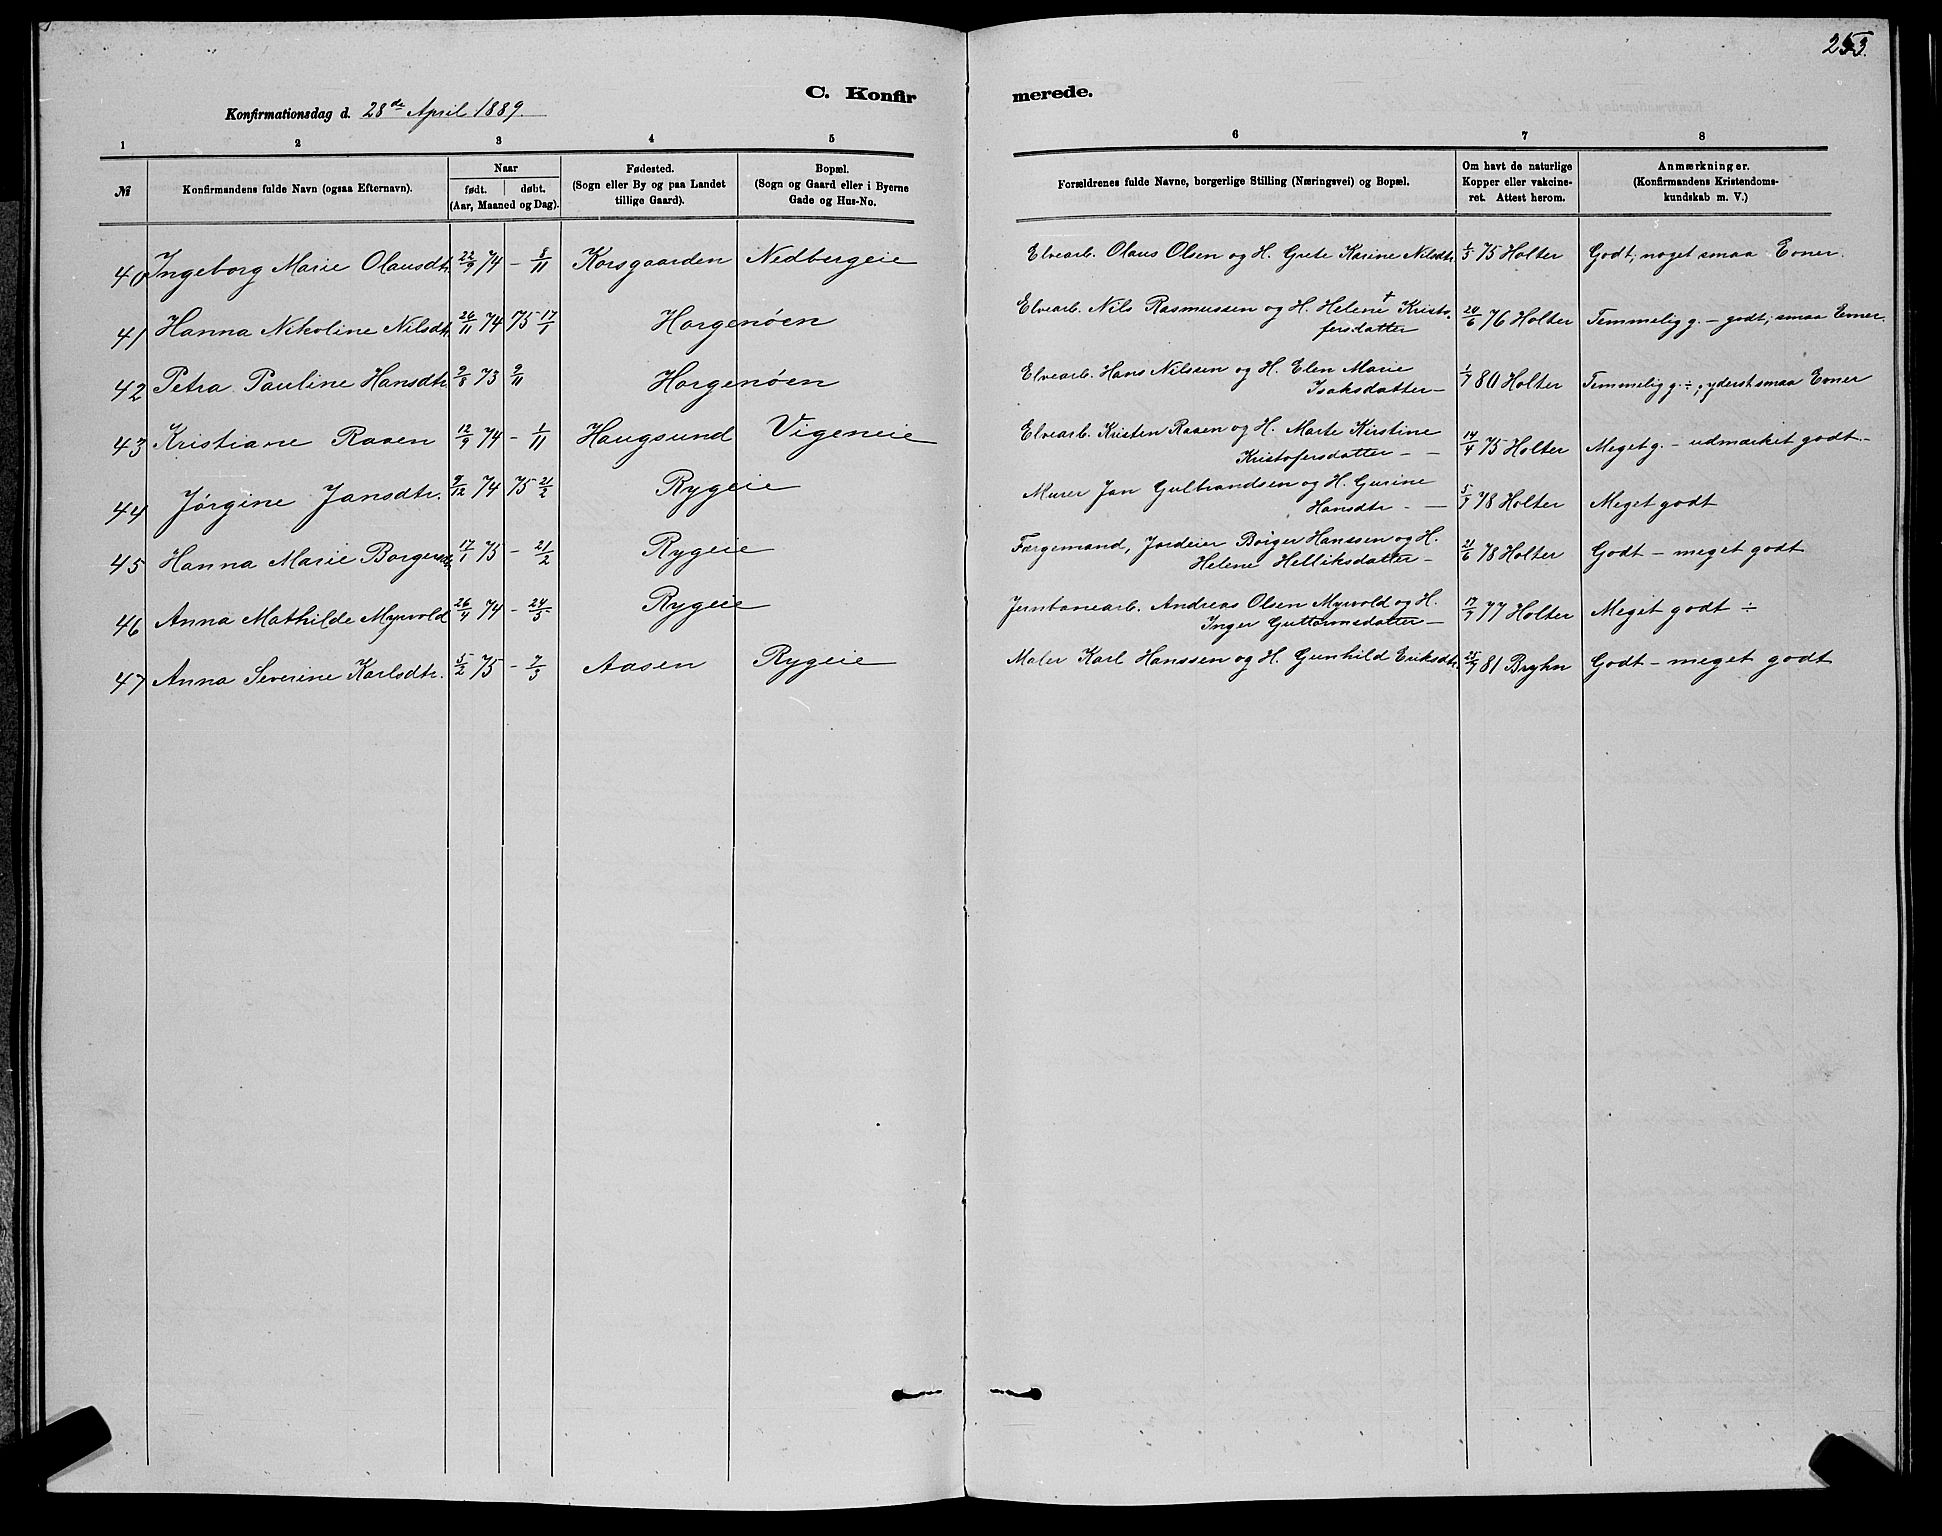 253.
C. Konfirmerede.
Konfirmationsdag d. 28de April 1889.
1 2 3 4 5 6 7 8
№ | Konfirmandens fulde Navn (ogsaa Efternavn). | Naar født. døbt. (Aar, Maaned og Dag). | Fødested. (Sogn eller By og paa Landet tillige Gaard). | Bopæl. (Sogn og Gaard eller i Byerne Gade og Hus-No. | Forældrenes fulde Navne, borgerlige Stilling (Næringsvei) og Bopæl. | Om havt de naturlige Kopper eller vakcineret. Attest herom. | Anmærkninger. (Konfirmandens Kristendomskundskab m. V.)
40 Ingeborg Marie Olausdtr. 22/9 74 – 8/11 Korsgaarden Nedbergeie Elvearb. Olaus Olsen og H. Grete Karine Nilsdtr. 1/5 75 Holter Godt; noget smaa Evner.
41 Hanna Nikoline Nilsdtr. 26/11 74 75 17/1 Horgenöen Elvearb. Nils Rasmussen og H. Helene † Kristofersdatter 24/6 76 Holter Temmelig g. – godt; smaa Evner.
42 Petra Pauline Hansdtr. 9/8 73 9/11 Horgenöen Elvearb. Hans Nilssen og H. Elen Marie Isaksdatter – 1/7 80 Holter Temmelig g. ÷; yderst smaa Evner
43 Kristiane Raaen 12/9 74 – 1/11 Haugsund Vigeneie Elvearb. Kristen Raaen og H. Marte Kirstine Kristofersdatter – – 14/4 75 Holter Meget g. – udmærket godt –
44 Jørgine Jansdtr. 9/12 74 75 21/2 Rygeie Murer Jan Gulbrandsen og H. Gurine Hansdtr – – 5/7 78 Holter Meget godt
45 Hanna Marie Borgersdtr. 17/1 75 – 21/2 Rygeie Færgemand, Jordeier Börger Hanssen og H. Helene Helliksdatter – 21/6 78 Holter Godt – meget godt
46 Anna Mathilde Myrvold 26/4 74 – 24/5 Rygeie Jernbanearb. Andreas Olsen Myrvold og H. Inger Guttormsdatter – 17/7 77 Holter Meget godt ÷
47 Anna Severine Karlsdtr. 5/2 75 – 7/3 Aasen Rygeie Maler Karl Hanssen og H. Gunhild Eriksdtr. 25/7 81 Bryhn Godt – meget godt